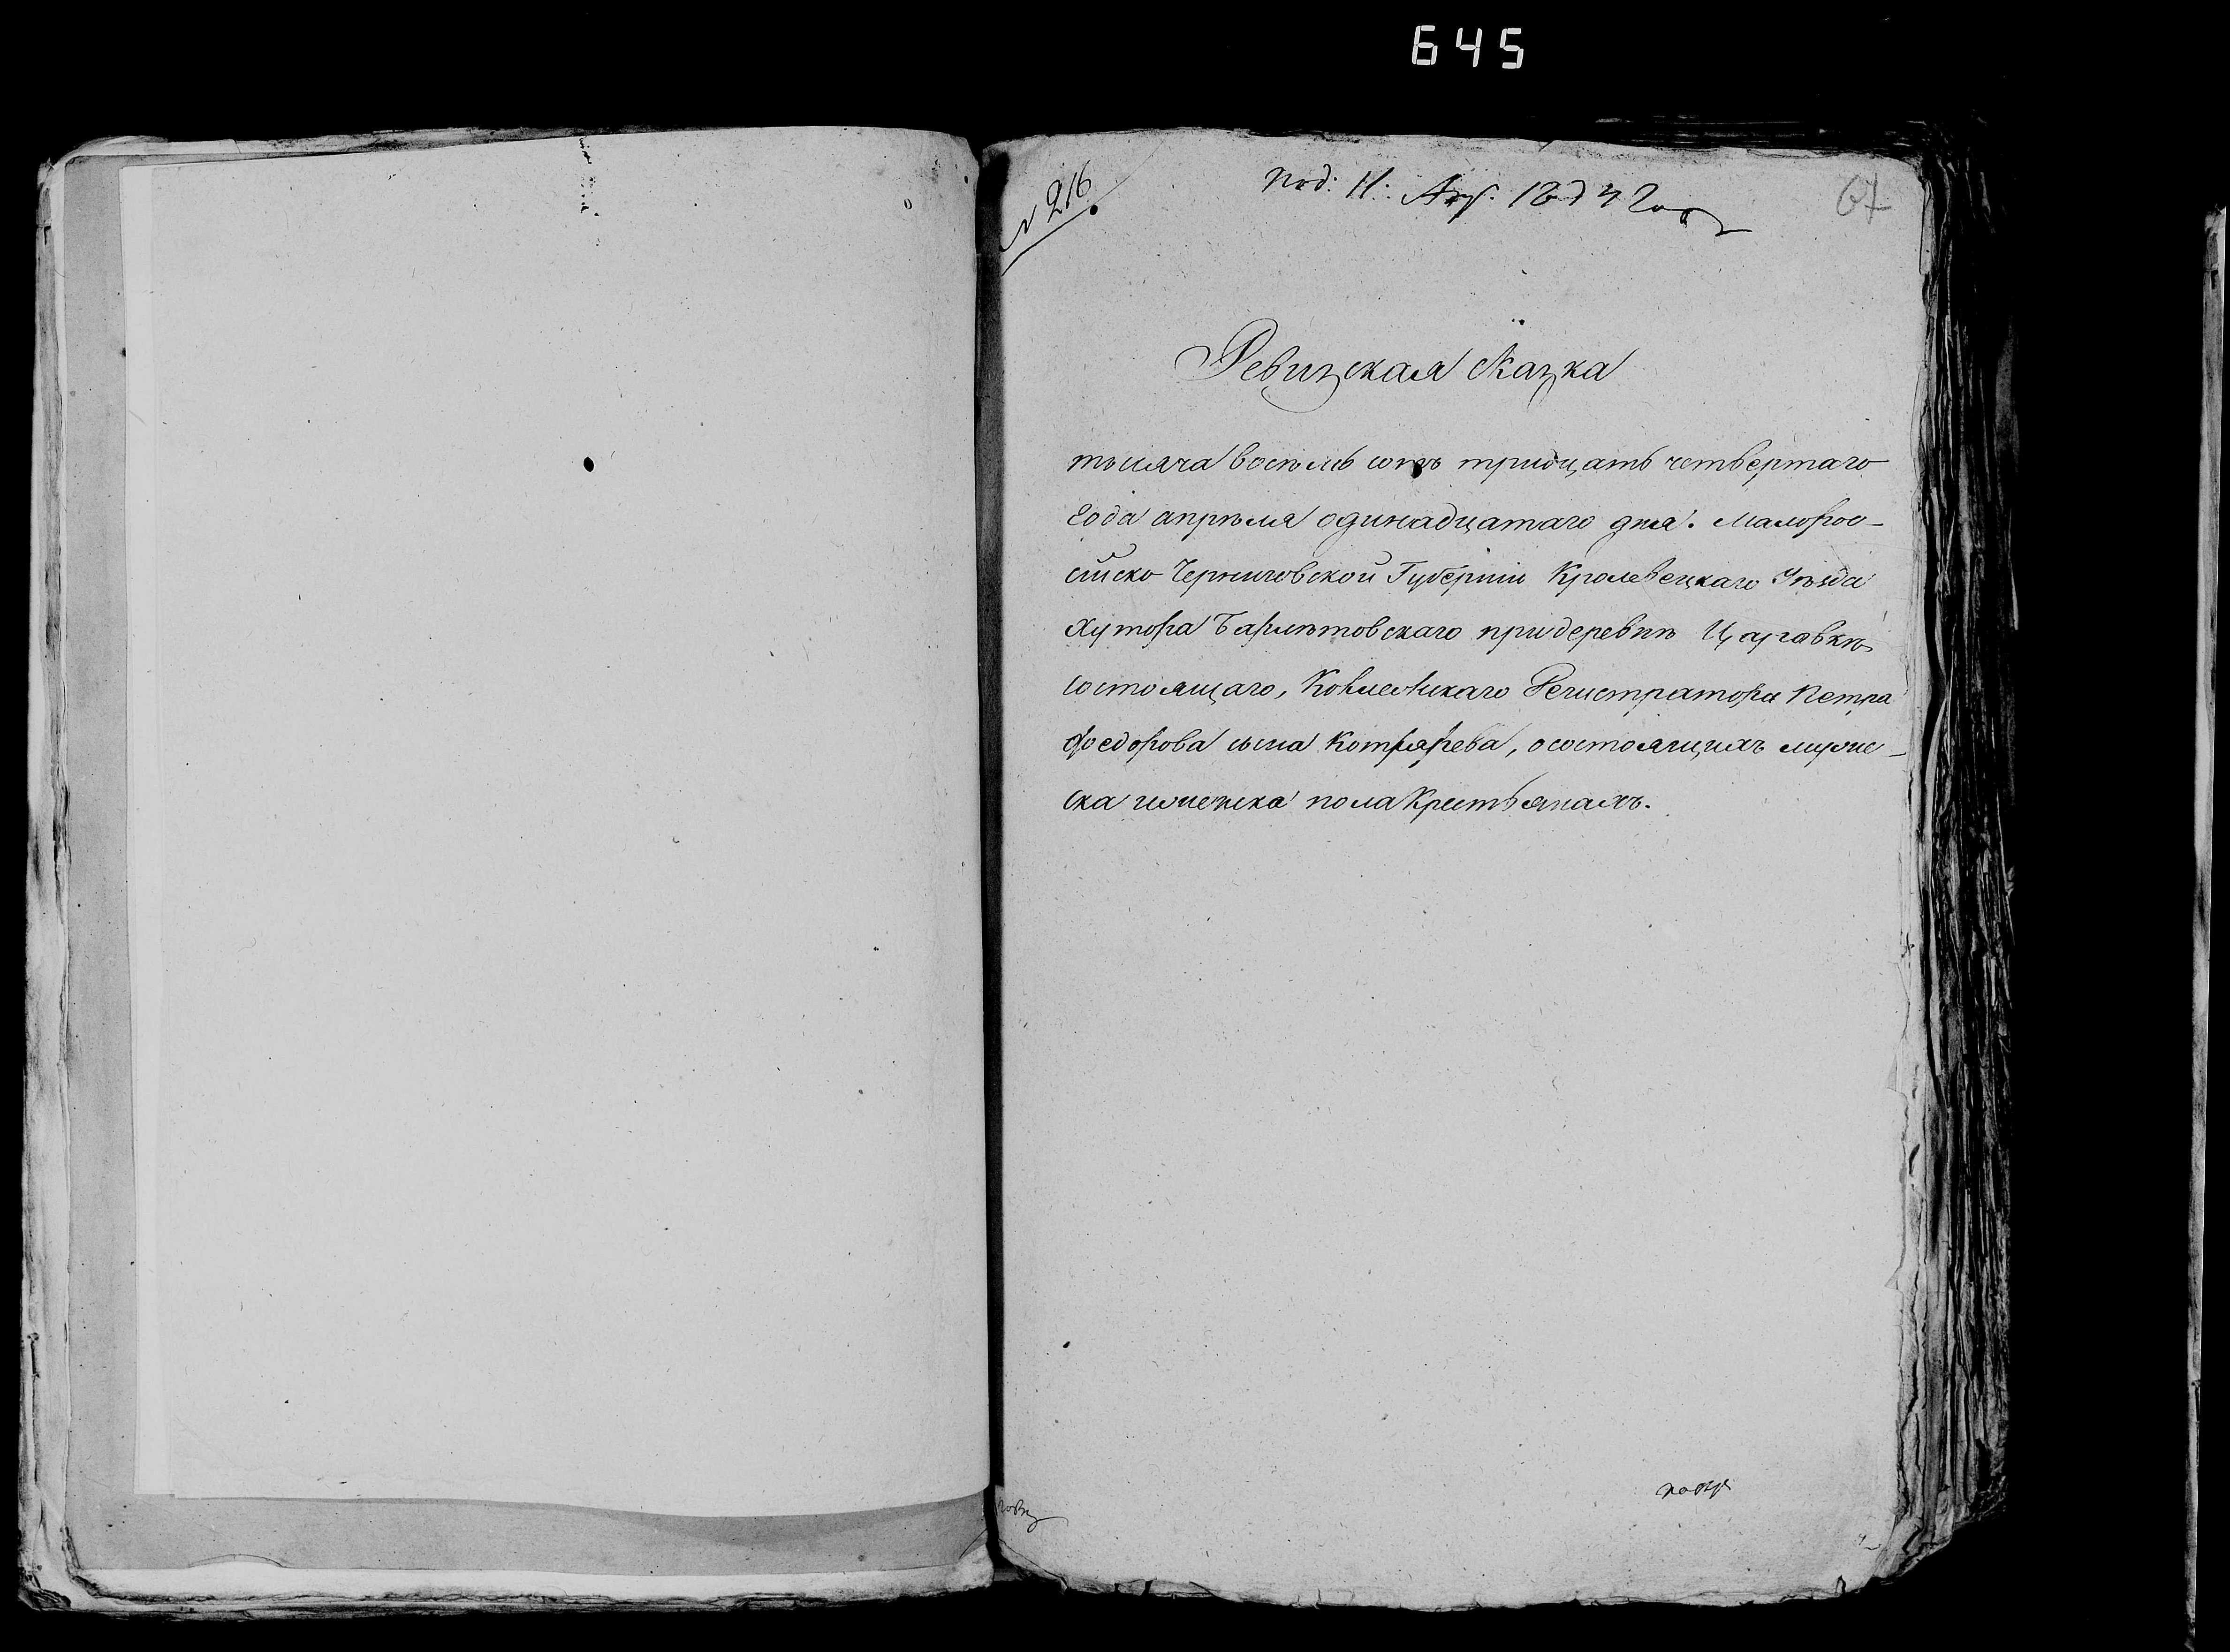 645
N 216
Под: 11: Апр. 1834 года
67
Ревизская сказка
тысяча восемь сотъ тридцать четвертаго
года апрѣля одинадцатаго дня. Малорос-
сійско Черниговской Губерніи Кролевецкаго Уѣзда
хутора при деревнѣ
состоящаго, Колежскаго Регистратора Петра
Федорова сына Котлярева, о состоящихъ мужес-
ска и женска пола Крестьянахъ.